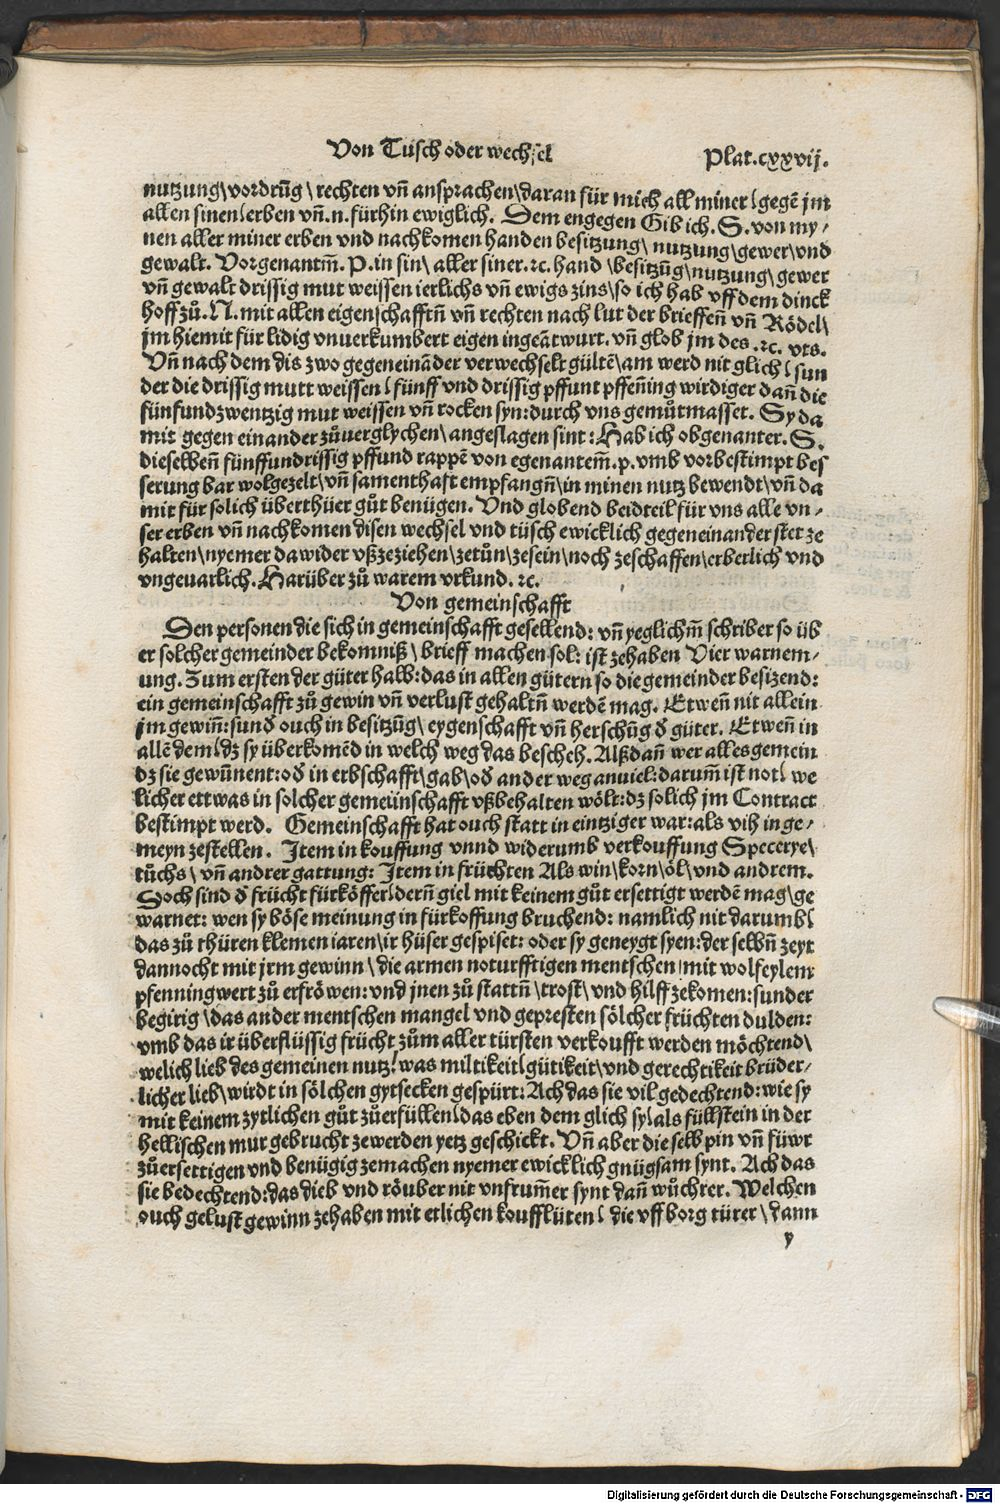 Von Tüsch oder wechsel
Plat.cxxvij.
nutzung\vordrūg \ rechten vn̄ ansprachen\daran für mich all miner ſ gegē jm
allen sinen ſ erben vn̄.n. fürhin ewiglich. Dem engegen Gib ich. S. von my⸗
nen aller miner erben vnd nachkomen handen besitzung\ nutzung\gewer\vnd
gewalt. Vorgenantm̄. P. in sin\ aller siner.⁊c. hand \besitzūg\nutzung\ gewer
vn̄ gewalt drissig mut weissen ierlichs vn̄ ewigs zins\so ich hab vff dem dinck
hoff zů. N. mit allen eigenschafftn̄ vn̄ rechten nach lut der brieffen̄ vn̄ Rödel\
jm hiemit für lidig vnuerkumbert eigen ingeātwurt. vn̄ glob jm des .⁊c. vts.
Vn̄ nach dem dis zwo gegeneināder verwechselt gültē\am werd nit glich ſ sun
der die drissig mutt weissen ſ fünff vnd drissig pffunt pffen̄ing wirdiger dan̄ die
fünfundzwentzig mut weissen vn̄ rocken syn:durch vns gemůtmasset. Sy da
mit gegen einander zůuerglychen\angeslagen sint : Hab ich obgenanter. S.
dieselben̄ fünffundrissig pffund rappē von egenantem̄.p. vmb vorbestimpt bes
serung bar wolgezelt\vn̄ samenthaft empfangn̄\in minen nutz bewendt\vn̄ da
mit für solich überthüer gůt benügen. Vnd globend beidteil für vns alle vn⸗
ser erben vn̄ nachkomen disen wechsel vnd tüsch ewicklich gegeneinander stet ze
halten\nyemer dawider vßzeziehen\zetůn\zesein\noch zeschaffen\erberlich vnd
vngeuarlich. Harüber zů warem vrkund. ⁊c.
Von gemeinschafft
Den personen die sich in gemeinschafft gesellend: vn̄ yeglichm̄ schriber so üb
er solcher gemeinder bekomniß \ brieff machen sol: ist zehaben Vier warnem⸗
ung. Zum ersten der güter halb:das in allen gütern so die gemeinder besizend:
ein gemeinschafft zů gewin vn̄ verlust gehaltn̄ werdē mag. Etwen̄ nit allein
jm gewin̄:sund̄ ouch in besitzūg\ eygenschafft vn̄ herschūg d̄ güter. Etwen̄ in
allē dem ſ dz sy überkomēd in welch weg das bescheh. Alßdan̄ wer alles gemein
dz sie gewünnent: od̄ in erbschafft\gab\od̄ ander weg anuiel:darum̄ ist not ſ we
licher ettwas in solcher gemeiinschafft vßbehalten wölt:dz solich jm Contract
bestimpt werd. Gemeinschafft hat ouch statt in eintziger war:als vih in ge⸗
meyn zestellen. Item in kouffung vnnd widerumb verkouffung Specerye\
tůchs \ vn̄ andrer gattung: Item in früchten Als win\korn\öl\vnd andrem.
Doch sind d̄ frücht fürköffer ſ dern̄ giel mit keinem gůt ersettigt werdē mag\ge
warnet: wen sy böse meinung in fürkoffung bruchend: namlich nit darumb ſ
das zů thüren klemen iaren\ir hüser gespiset: oder sy geneygt syen:der selbn̄ zeyt
dannocht mit jrm gewinn \ die armen noturfftigen mentschen mit wolfeylem
pfenningwert zů erfröwen:vnd jnen zů stattn̄ \trost\ vnd hilff zekomen:sunder
begirig \das ander mentschen mangel vnd gepresten sölcher früchten dulden:
vmb das ir überflüssig frücht zům aller türsten verkoufft werden möchtend\
welich lieb des gemeinen nutz ſ was miltikeit ſ gütikeit\vnd gerechtikeit brüder⸗
licher lieb\wirdt in sölchen gytsecken gespürt: Ach das sie vil gedechtend:wie sy
mit keinem zytlichen gůt zůerfüllen ſ das eben dem glich sy ſ als füllstein in der
hellischen mur gebrucht zewerden yetz geschickt. Vn̄ aber die selb pin vn̄ füwr
zůersettigen vnd benügig zemachen nyemer ewicklich gnügsam synt. Ach das
sie bedechtend:das dieb vnd röuber nit vnfrum̄er synt dan̄ wůchrer. Welchen
ouch gelust gewinn zehaben mit etlichen koufflüten ſ die vff borg türer \ dann
y
Digitalisierung gefördert durch die Deutsche Forschungsgemeinschaft - DFG